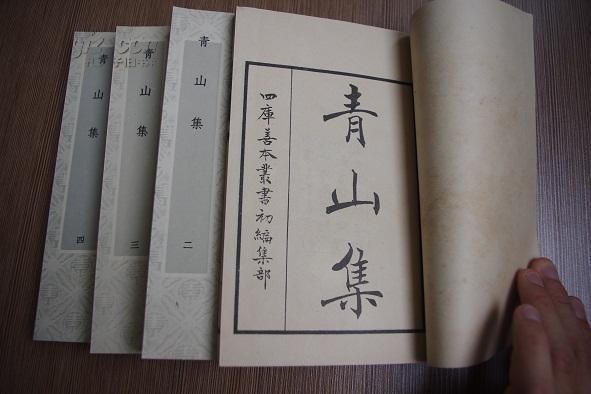 青山集
四庫善本叢書初編集部
青山集
二
青山集
三
青山集
四